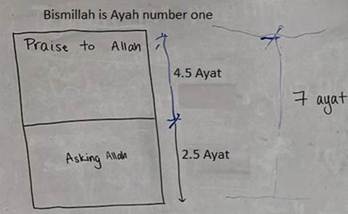 Bismillah is Ayah number one
Praise to Allah
4.5 Ayat
7 ayat
Asking Allah
2.5 Ayat